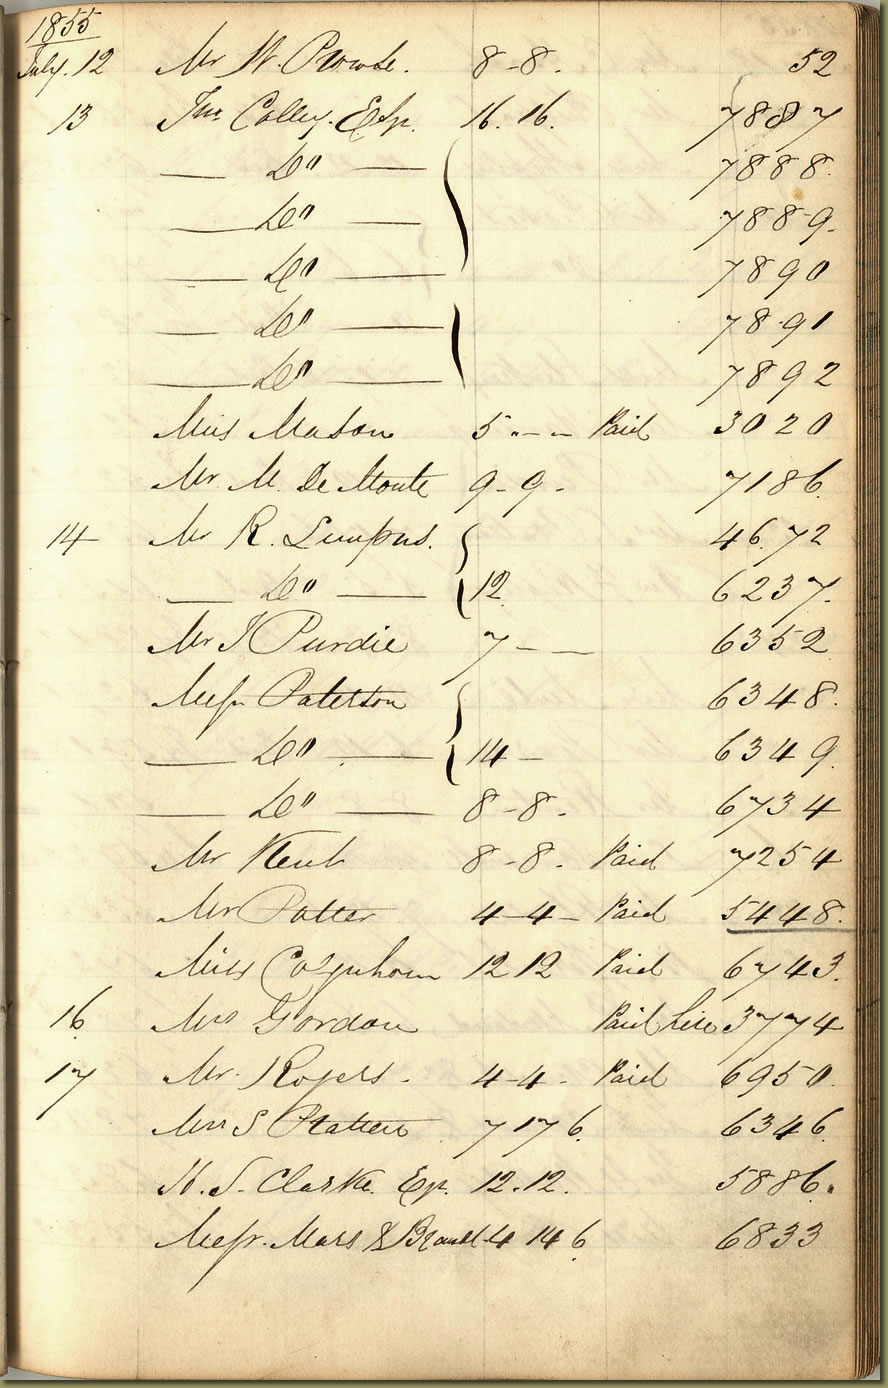 1855
July. 12 Mr W. Prowse. 8-8. 52
13 Jno Colley. Esqr. 16. 16. 7887
— Do — 7888.
— Do — 7889.
— Do — 7890
— Do — 7891
— Do — 7892
Miss Mason 5 " - - Paid 3020
Mr M. De Monte 9-9- 7186.
14 Mr R. Lumpus. 4672
— Do — 12. 6237.
Mr J Purdie 7 - - 6352
Messrs Paterson 6348.
— Do — 14 - 6349.
— Do — 8-8. 6734
Mr Kent 8-8. Paid 7254
Mr Potter 4-4- Paid 5448.
Miss 12 12 Paid 6743.
16 Mrs Gordon Paid hire 3774
17 Mr. Rogers - 4-4- Paid 6950.
Mrs S 7 17 6. 6346.
H. S. Clarke. Esqr. 12.12. 5886.
Messr. Mars & 4 14 6. 6833